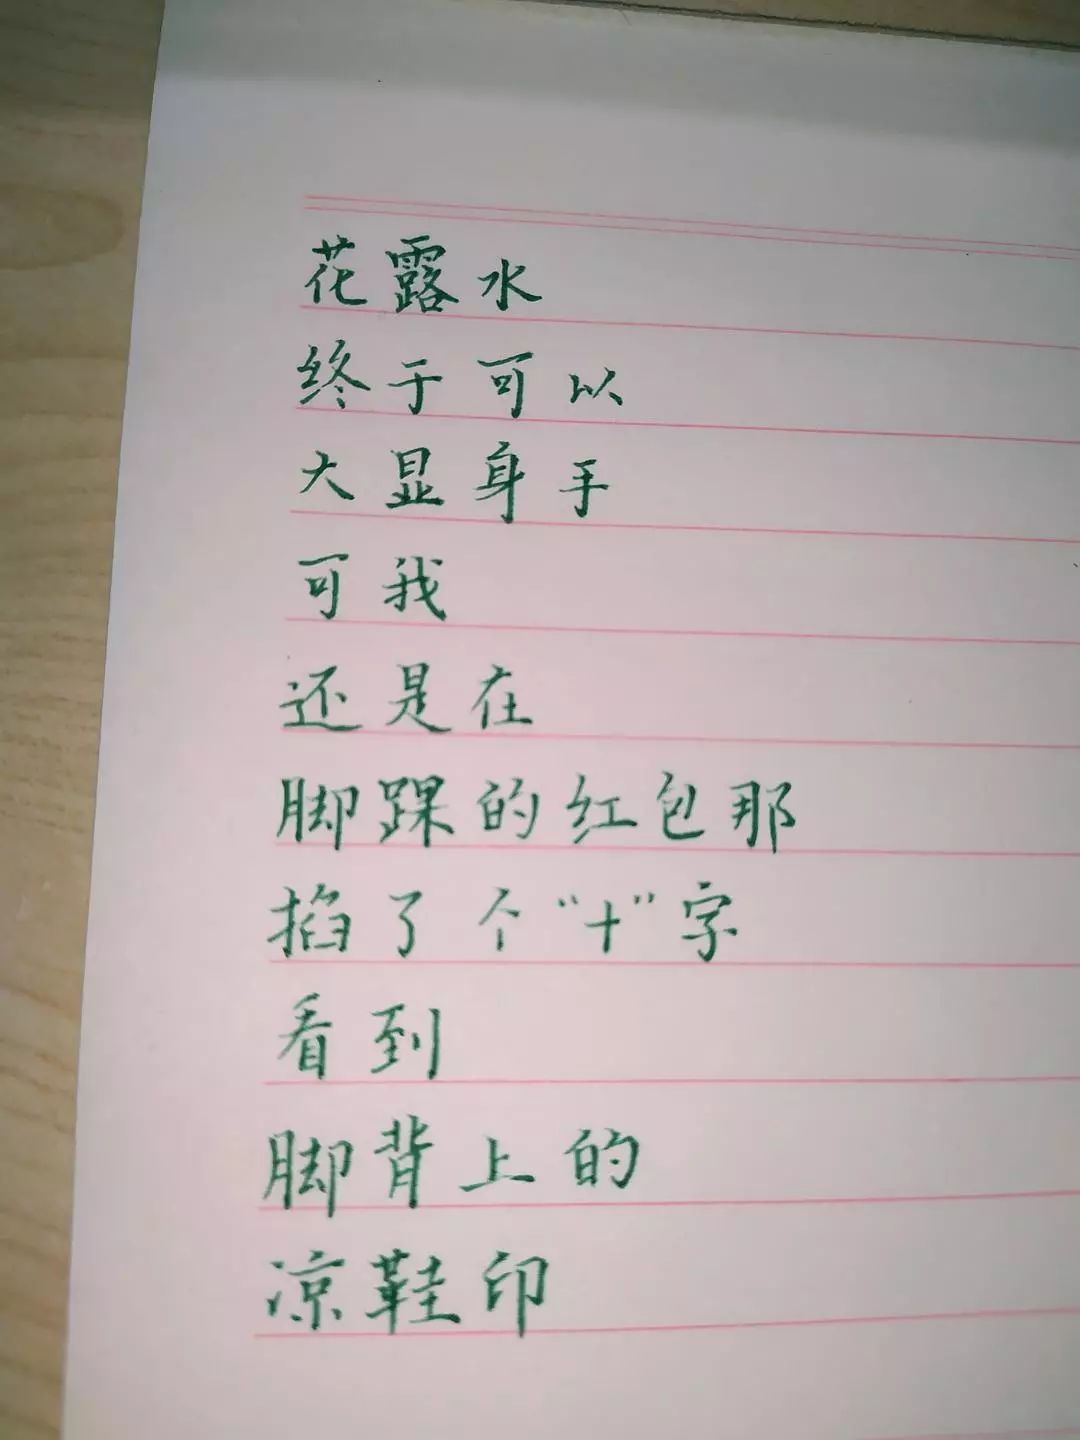 花露水
终于可以
大显身手
可我
还是在
脚踝的红包那
掐了个“十”字
看到
脚背上的
凉鞋印